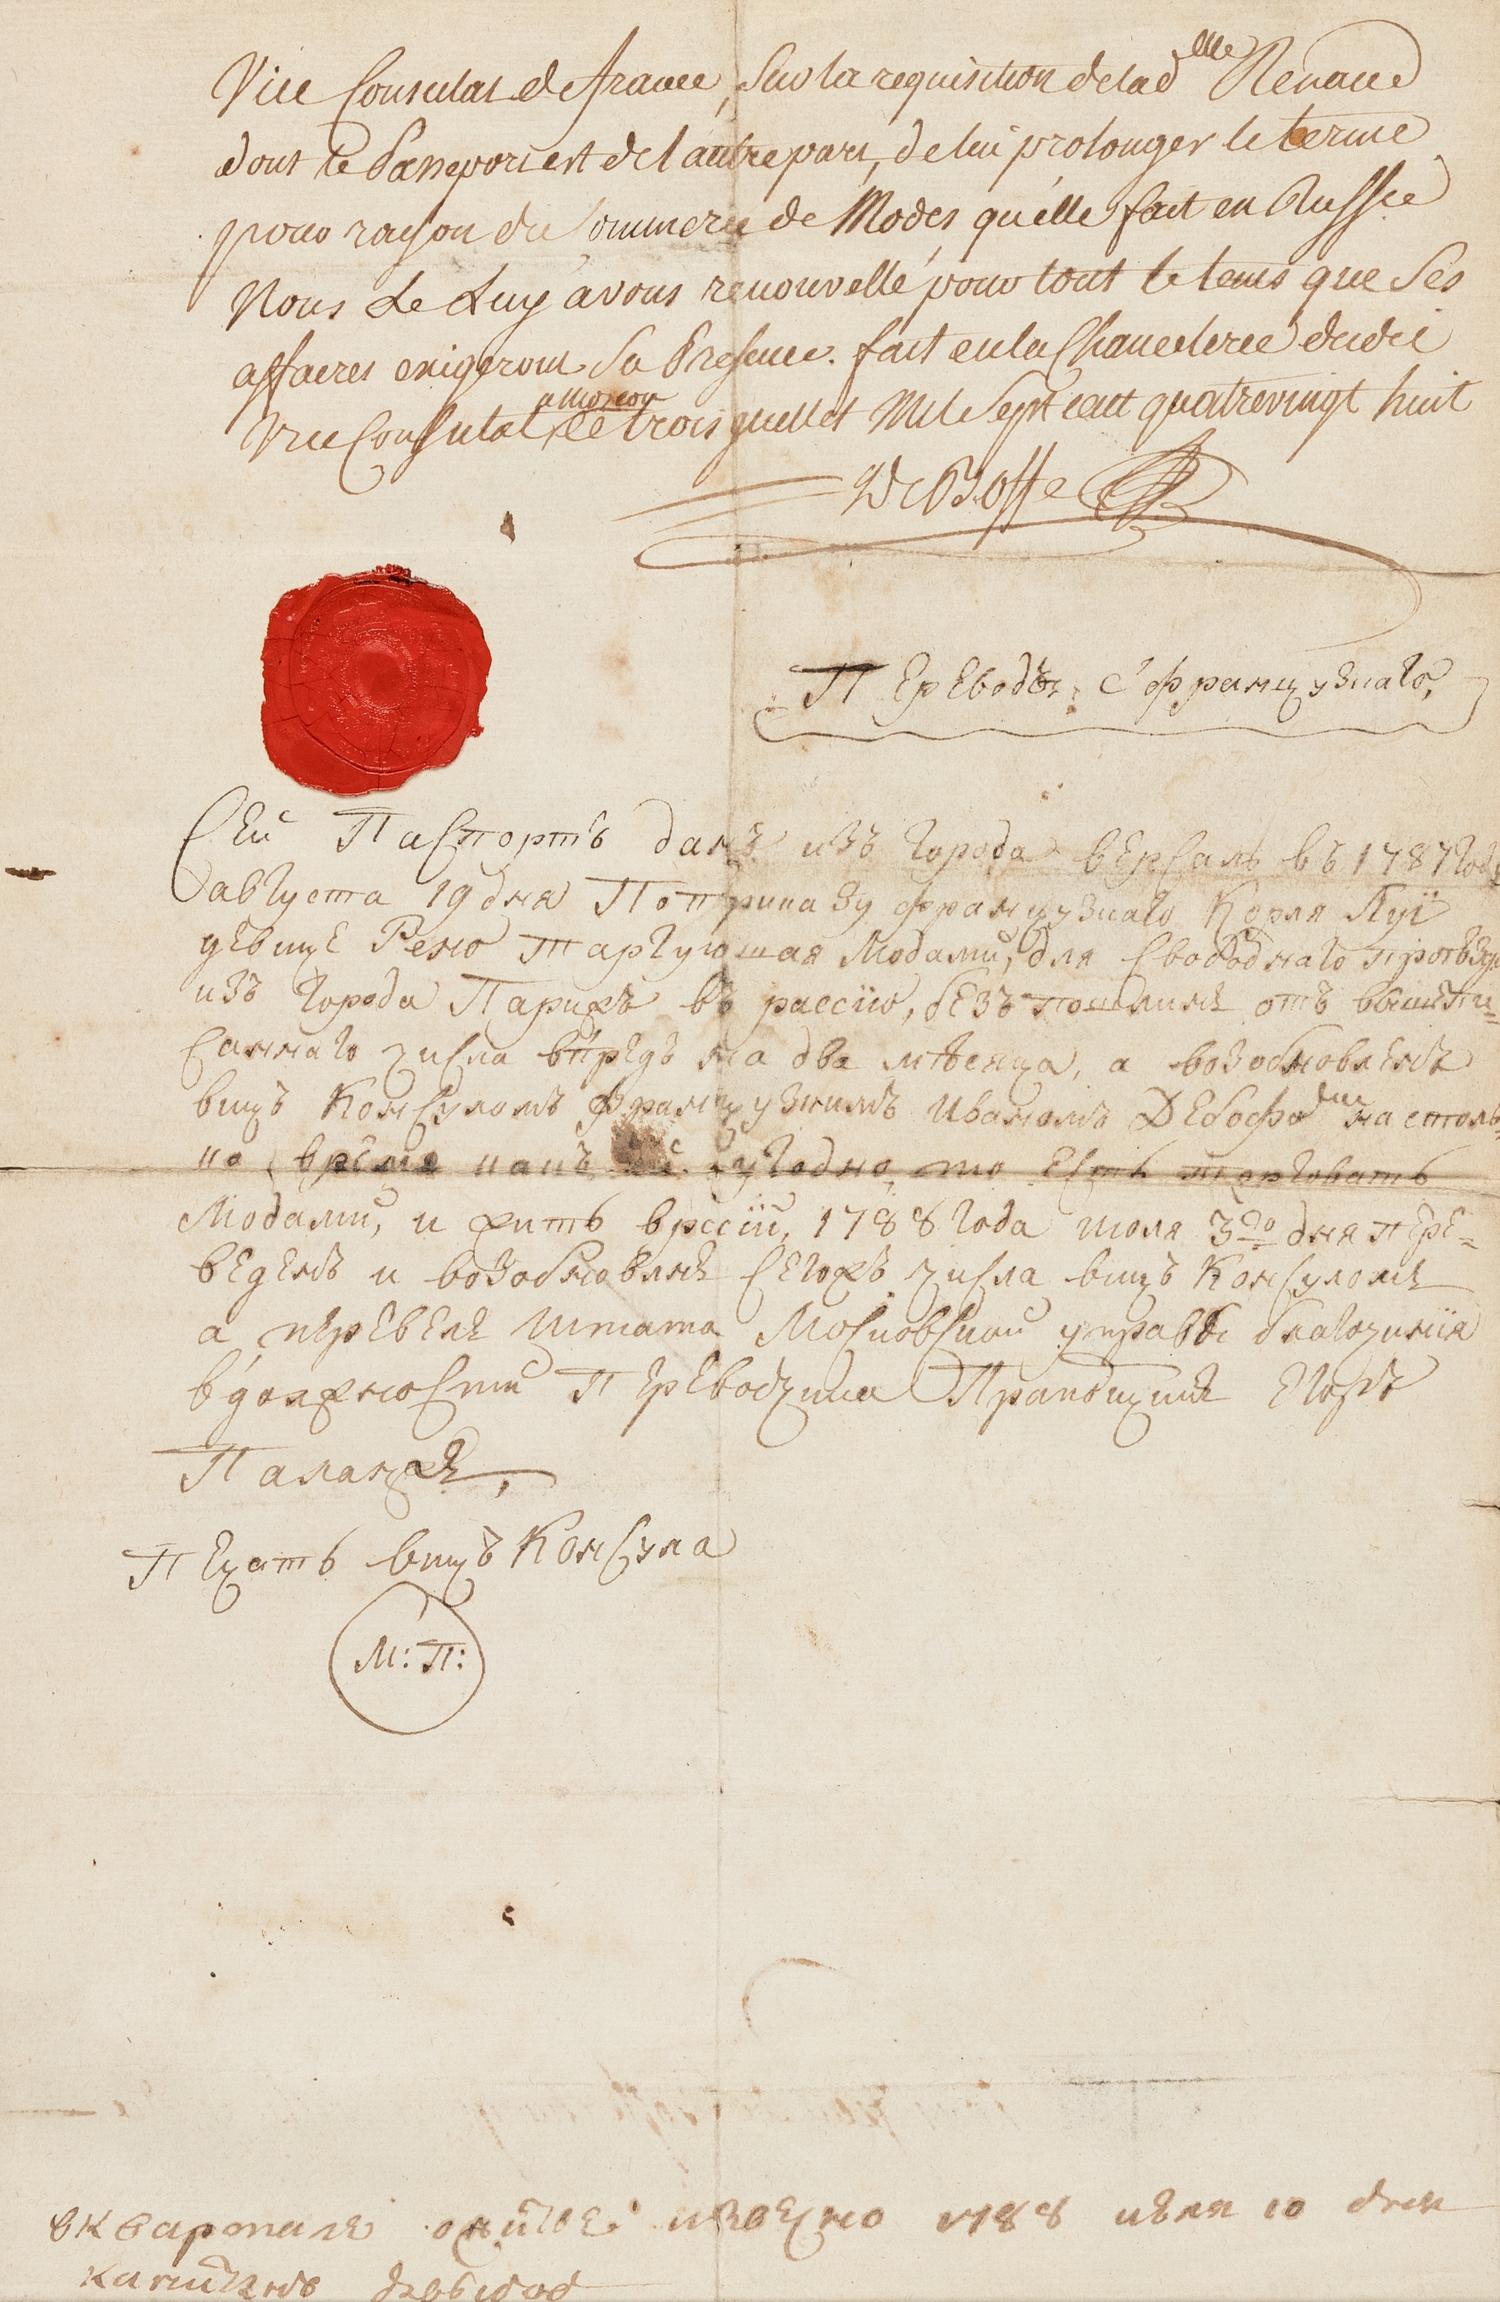 Vice Consulat de france, Sur la requisition de lad elle Renaud
dont le Passeport est de l'autre part, de lui prolonger le terme
pour rayson du Commerce de Modes qu'elle fait en Russie
Nous Le Luy avons renouvellé pour tout le tems que Ses
affaires exigeront Sa Presence. fait en la Chancelerie dudit
Vice Consulat a Moscou le trois juillet Mil Sept cent quatrevingt huit
De Bosse
Переводъ с французкаго,
Сей Паспортъ данъ изъ города версаль въ 1787 году
августа 19 дня По приказу французкаго Короля Луї
девице Рено таргующая Модами, для свободнаго проѣзду
изъ города Парижъ въ рассїю, безъ пошлинъ отъ вышепи=
саннаго числа впредь на два мѣсяца, а возобновленъ
вицъ Консуломъ французкимъ Иваномъ Дебофомъ на столь=
ко время какъ ей угодно, то есть торговать
Модами, и жить в рссїи, 1788 года июля 3го дня пере=
веденъ и возобновлнъ сегожъ числа вицъ Консуломъ
а перевелъ штата Московской управы благочинїя
в должности Переводчика Прапощикъ
Паланже,
Печать вицъ Консула
М: П:
в квартале 1788 июля 10 дня